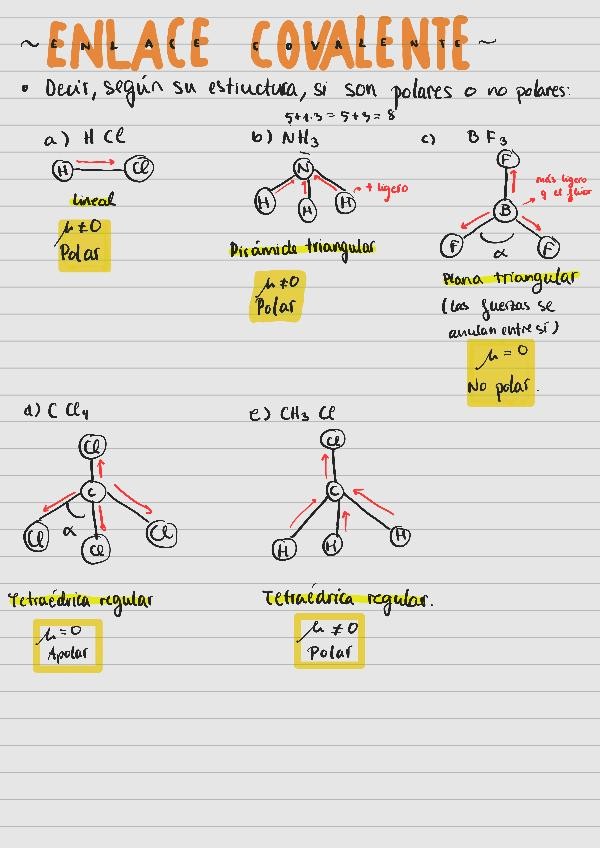 ~ ENLACE COVALENTE ~
ENLACE COVALENTE
• Decir, según su estructura, si son polares o no polares:
5+1·3 = 5+3 = 8
a) H Cl
H Cl
Lineal
μ ≠ 0
Polar
b) NH3
N
H H H
+ ligero
Pirámide triangular
μ ≠ 0
Polar
c) B F3
F
más ligero
q el flúor
B
F α F
Plana triangular
(Las fuerzas se
anulan entre sí)
μ = 0
No polar.
d) C Cl4
Cl
C
α
Cl Cl Cl
Tetraédrica regular
μ = 0
Apolar
e) CH3 Cl
Cl
C
H H H
Tetraédrica regular.
μ ≠ 0
Polar